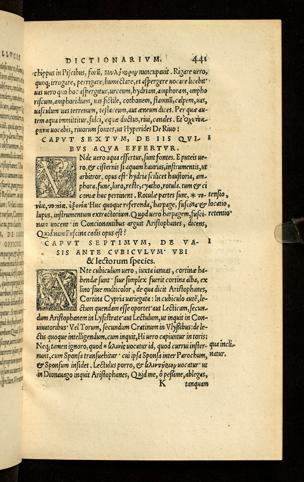 DICTIONARIVM. 441
chippus in Piscibus, forū, nuncupauit. Rigare vero,
quoq; irrugare, perrigare, humectare, et aspergere uocare licebit
uas vero quo hac aspergatur, urceum, hydriam, amphoram, ampho
riscum, amphoridium, uas fictile, cothonem, stamnū, calpem, uas,
uasculum uas terreum, testaceum, aut aeneum dices. Per qua au-
tem aqua immittitur, sulci, aquæ ductus, riui, canales. Et
quam vocabis, riuorum fontes, ut Hyperides De Riuo:
CAPVT SEXTVM, DE IIS QVI
BVS AQVA EFFERTVR.
VNde uero aqua effertur, sunt fontes. E puteis ue-
ro, & cisternis si aquam haurias, instrumentis, ut
arbitror, opus est: hydria scilicet haustoria, am-
phora, fune, loro, recte, cyatho, rotula. tum & ci
coniæ huc pertinent. Rotulæ partes sunt, tensio,
Huc quoque referenda, harpage, fuscina, & locatio,
lupus, instrumentum extractorium. Quod uero harpagem, fusci- retentio
nam uocent in Concionantibus arguit Aristophanes, dicens,
Quid nam fuscinæ cadis opus est?
CAPVT SEPTIMVM, DE VA-
SIS ANTE CVBICVLVM VBI
& lectorum species.
ANte cubiculum uero, iuxta ianuas, cortinæ haben-
dæ sunt: siue simplex fuerit cortina alba, ex
lino siue multicolor. de qua dicit Aristophanes,
Cortina Cypria uariegata: In cubiculo autē, le-
ctum quendam esse oportet aut Lecticam, secun-
dum Aristophanem in Lysistrate aut Lectulum, ut inquit in Con-
uiuatoribus: Vel Torum, secundum Cratinum in Vlyssibus: de le-
ctu quoque intelligendum, cum inquit, Hi uero capiuntur in toris:
Neq; tamen ignoro, quod uocatur id, quod currui inster- que incli-
nunt, cum Sponsa transuehitur: cui ipsa Sponsa inter Parochum, natur.
& Sponsum insidet. Lectulus porro, & uocatur: ut
in Dionauago inquit Aristophanes, Quid me, ô pessime, ablegas,
K tanquam